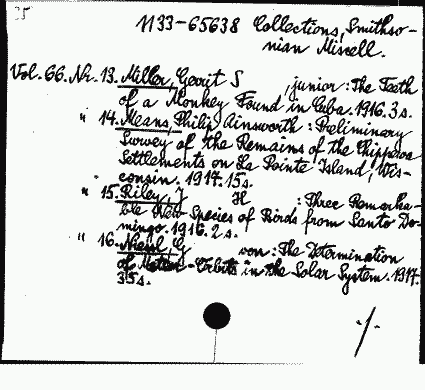 35
1133-65638 Collections, Smithso-
nian Miscell.
Vol. 66. Nr. 13. Miller, Gerrit S , junior: The Teeth
of a Monkey Found in Cuba. 1916. 3 s.
" 14. Means, Philip Ainsworth: Preliminary
Survey of the Remains of the Chippewa
Settlements on La Pointe Island, Wis-
consin. 1917. 15 s.
" 15. Riley, J H : Three Remarka-
ble New Species of Birds from Santo Do-
mingo. 1916. 2 s.
" 16. Niessl, G von: The Determination
of Meteor-Orbits in the Solar System. 1917.
35 s.
-/-